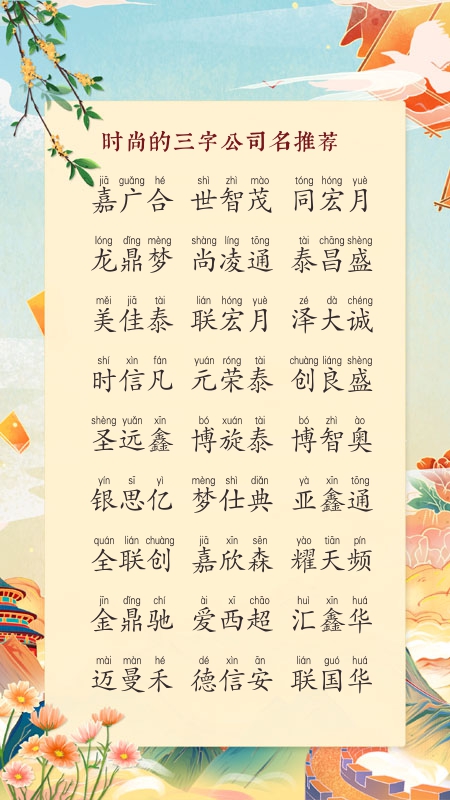 时尚的三字公司名推荐
jiā guǎng hé shì zhì mào tóng hóng yuè
嘉广合 世智茂 同宏月
lóng dǐng mèng shàng líng tōng tài chāng shèng
龙鼎梦 尚凌通 泰昌盛
měi jiā tài lián hóng yuè zé dà chéng
美佳泰 联宏月 泽大诚
shí xìn fán yuán róng tài chuàng liáng shèng
时信凡 元荣泰 创良盛
shèng yuǎn xīn bó xuán tài bó zhì ào
圣远鑫 博旋泰 博智奥
yín sī yì mèng shì diǎn yà xīn tōng
银思亿 梦仕典 亚鑫通
quán lián chuàng jiā xīn sēn yào tiān pín
全联创 嘉欣森 耀天频
jīn dǐng chí ài xī chāo huì xīn huá
金鼎驰 爱西超 汇鑫华
mài màn hé dé xìn ān lián guó huá
迈曼禾 德信安 联国华